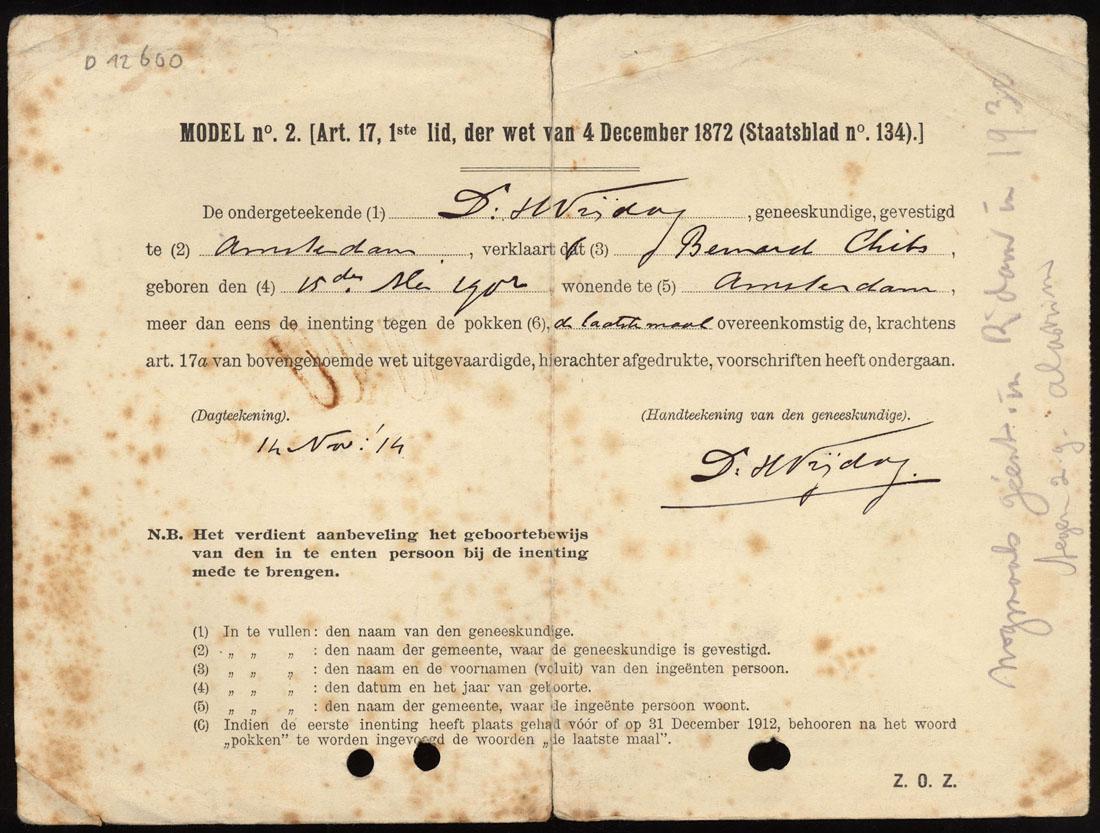 D 12600
MODEL nº. 2. [Art. 17, 1ste lid, der wet van 4 December 1872 (Staatsblad nº. 134).]
De ondergeteekende (1) Dr. H Vrijdag, geneeskundige, gevestigd
te (2) Amsterdam, verklaart dat (3) Bernard Chits,
geboren den (4) 15den Mei 1902 wonende te (5) Amsterdam,
meer dan eens de inenting tegen de pokken (6), de laatste maal overeenkomstig de, krachtens
art. 17a van bovengenoemde wet uitgevaardigde, hierachter afgedrukte, voorschriften heeft ondergaan.
(Dagteekening).
14 Nov: '14
(Handteekening van den geneeskundige).
Dr. H Vrijdag.
N.B. Het verdient aanbeveling het geboortebewijs
van den in te enten persoon bij de inenting
mede te brengen.
(1) In te vullen: den naam van den geneeskundige.
(2) „ „ „ : den naam der gemeente, waar de geneeskundige is gevestigd.
(3) „ „ „ : den naam en de voornamen (voluit) van den ingeënten persoon.
(4) „ „ „ : den datum en het jaar van geboorte.
(5) „ „ „ : den naam der gemeente, waar de ingeënte persoon woont.
(6) Indien de eerste inenting heeft plaats gehad vóór of op 31 December 1912, behooren na het woord
„pokken” te worden ingevoegd de woorden „de laatste maal”.
Z. O. Z.
nogmaals géént in R'dam in 1930
tegen z.g. alastrim